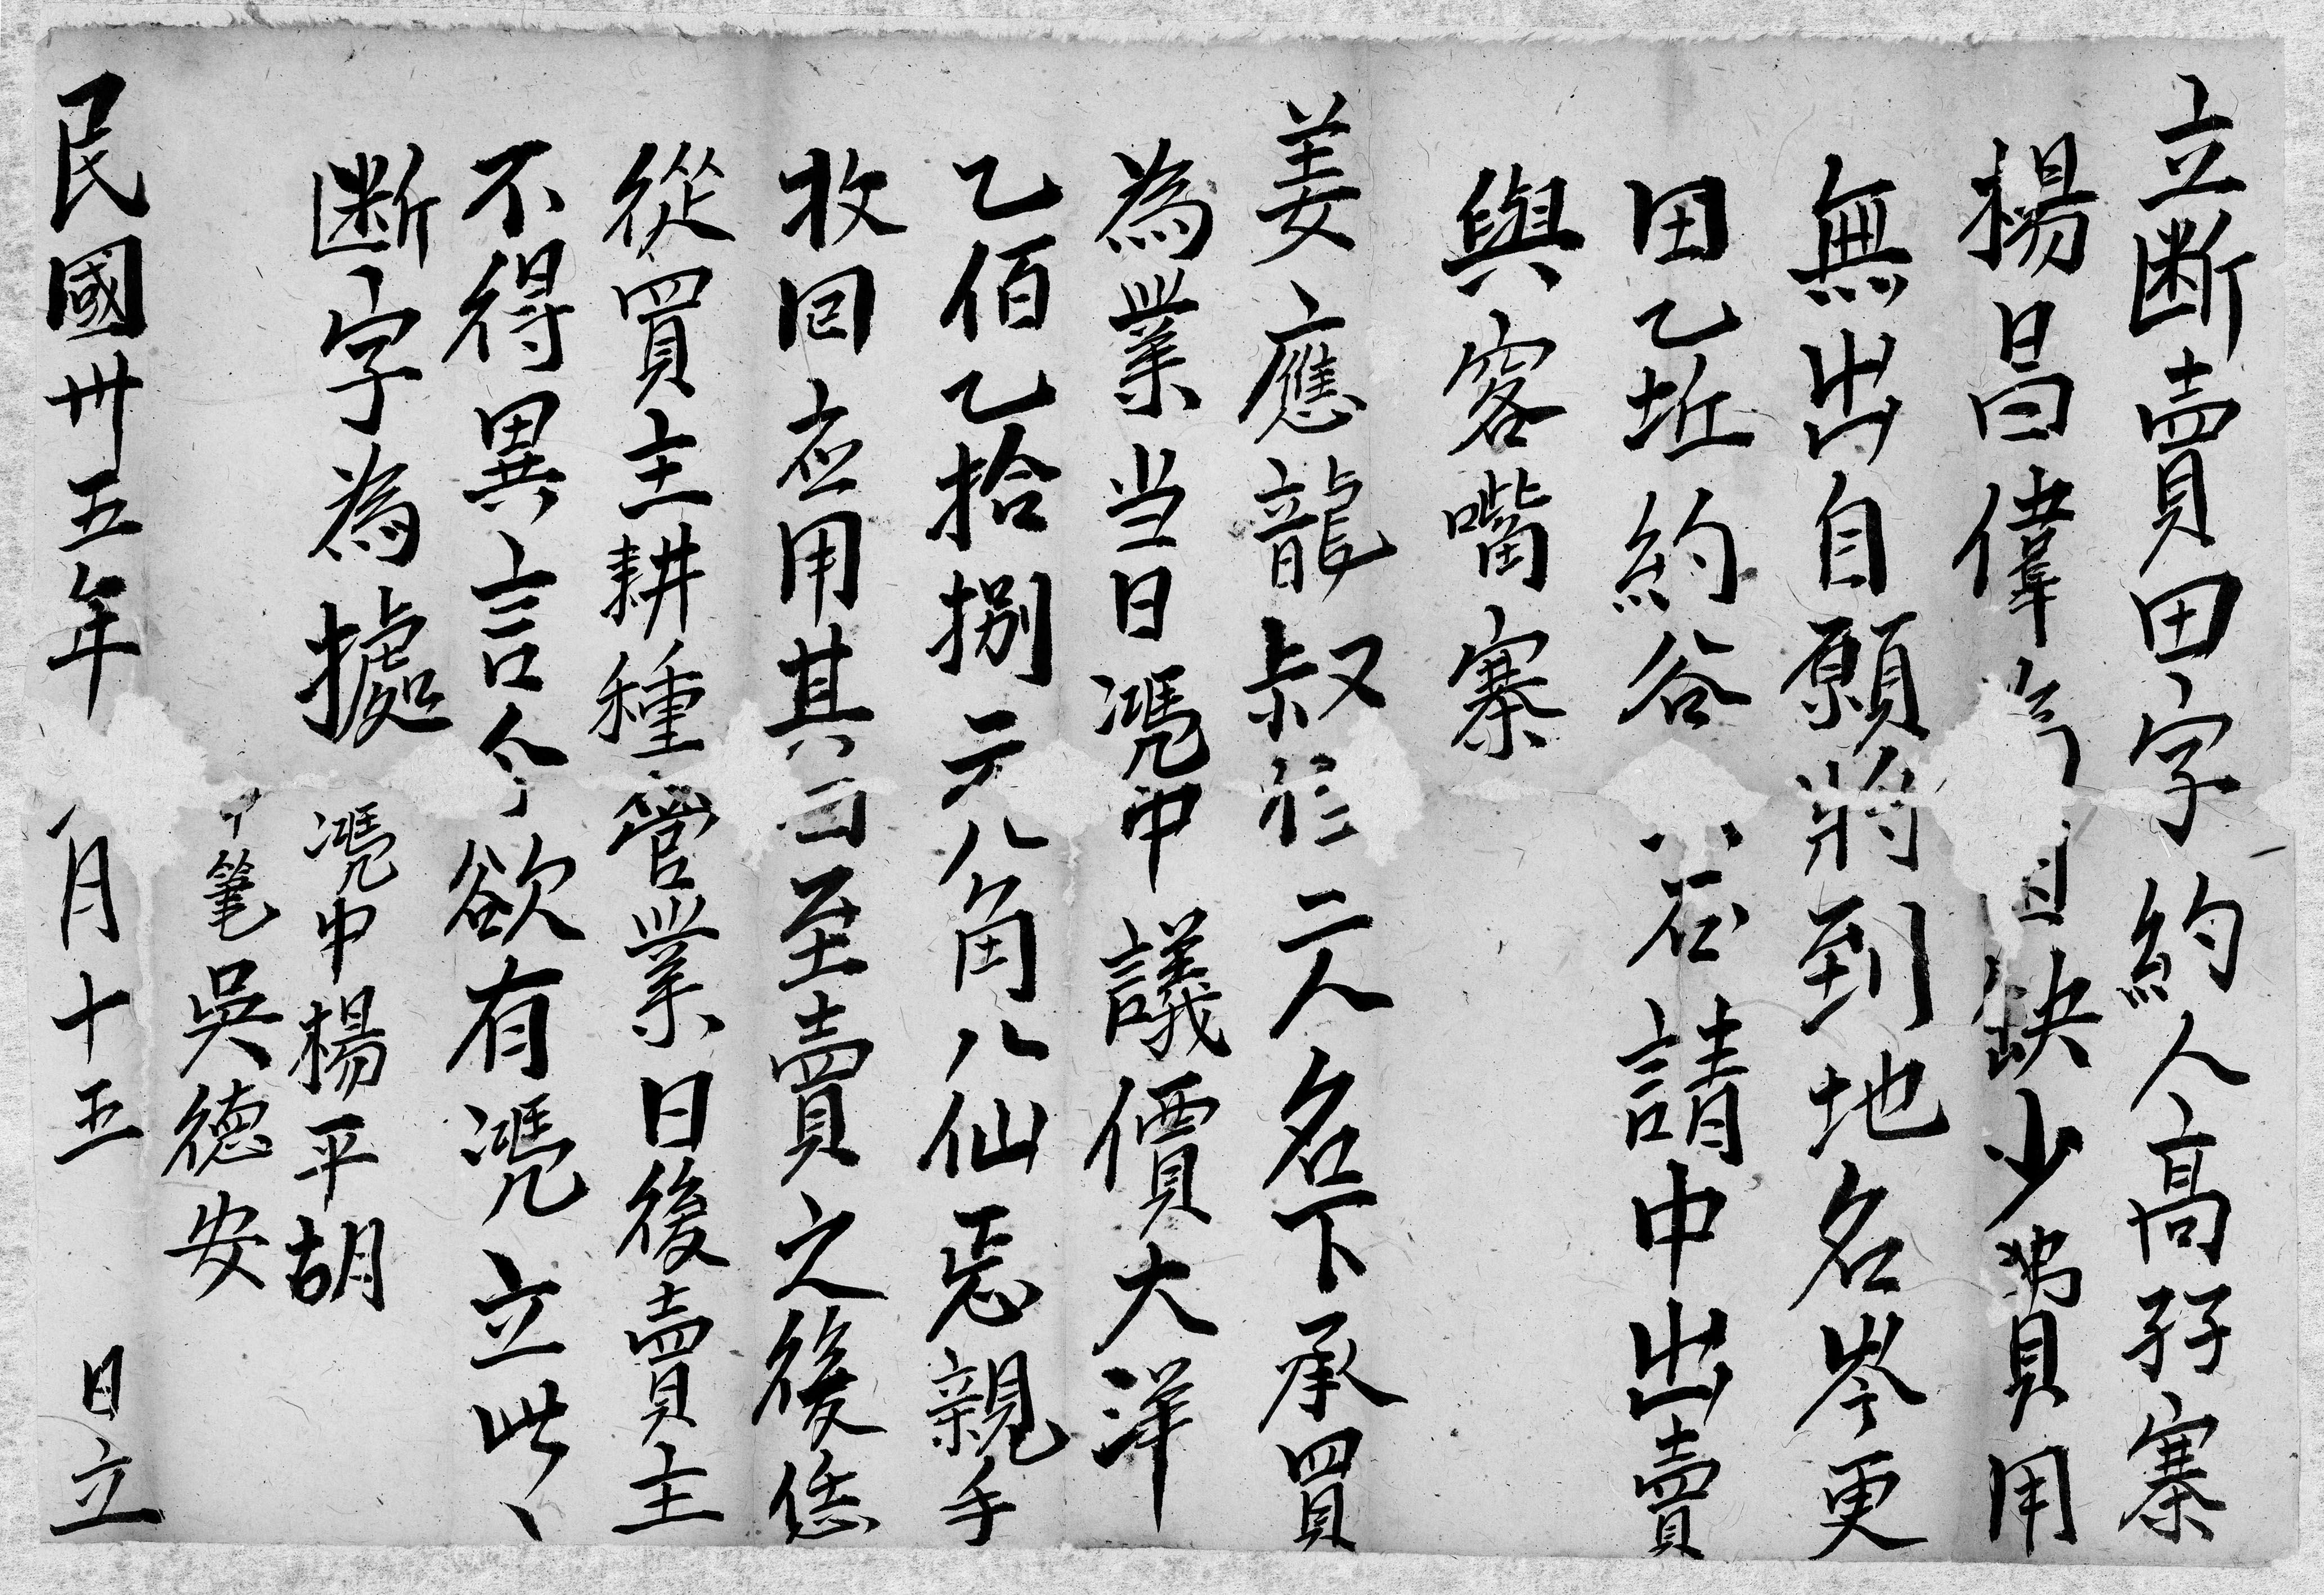 立断賣田字約人高孖寨
楊昌偉 缺少費用
無出自願將到地名岑更
田乙坵約谷 石請中出賣
與客嘴寨
姜應龍叔 二人名下承買
為業当日凴中議價大洋
乙佰乙拾捌元八角八仙 親手
收回应用其田至賣之後恁
從買主耕種管業日後賣主
不得異言今欲有凴立此
断字為據
凴中楊平胡
筆吳德安
民國卅五年 月十五 日立